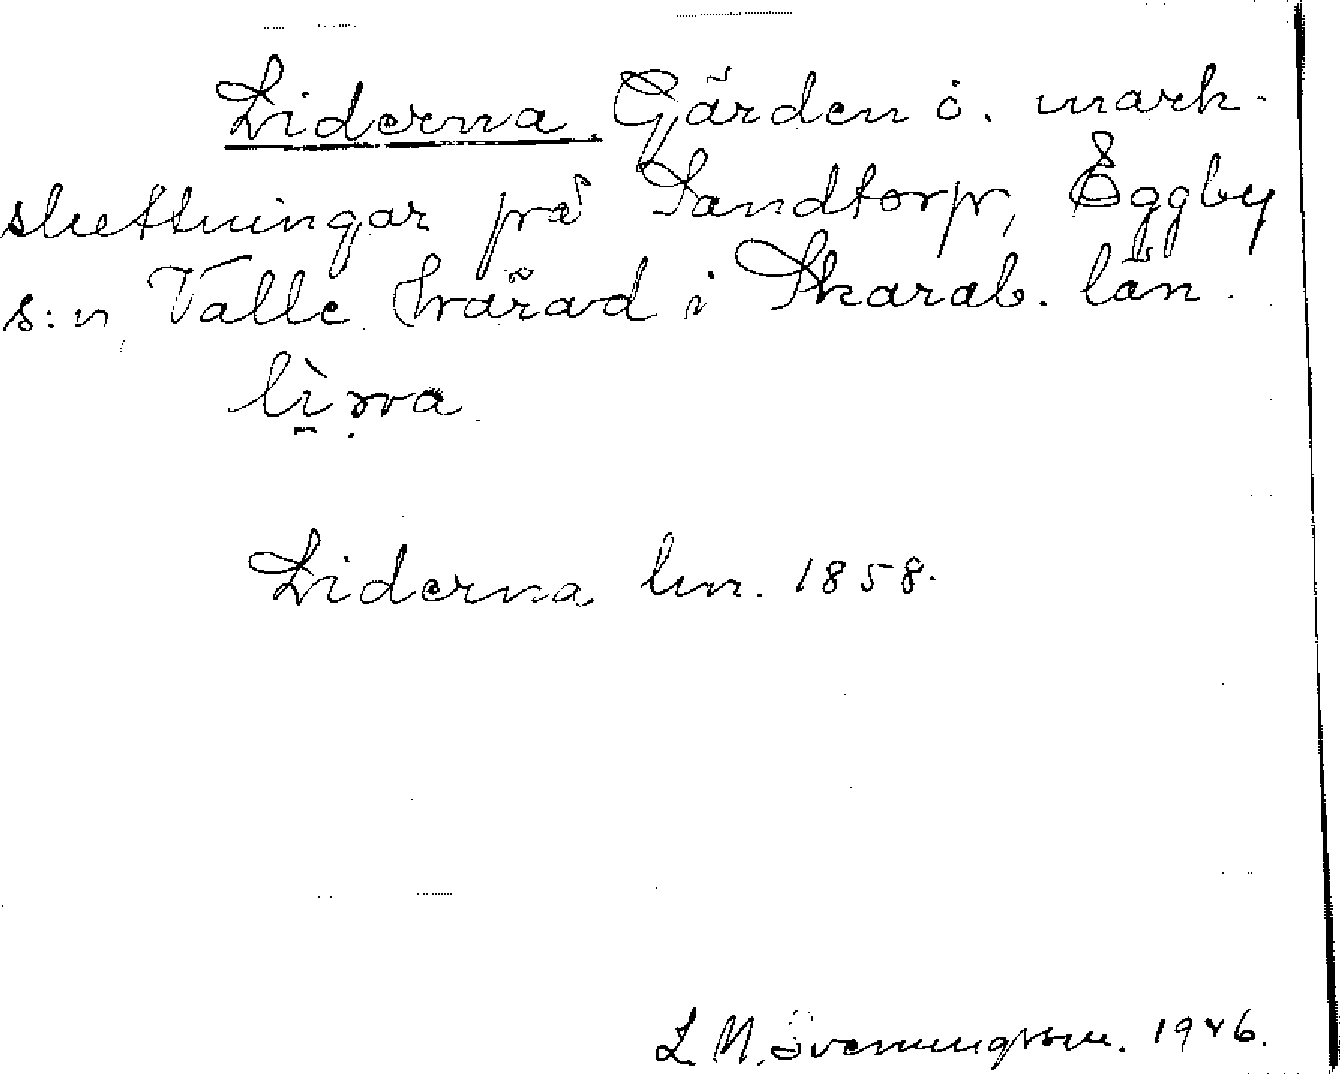 Liderna. Gärden o. mark-
sluttningar på Sandtorp, Eggby
s:n, Valle härad i Skarab. län.
Liderna lm. 1858.
L. M. Svenungsson. 1946.